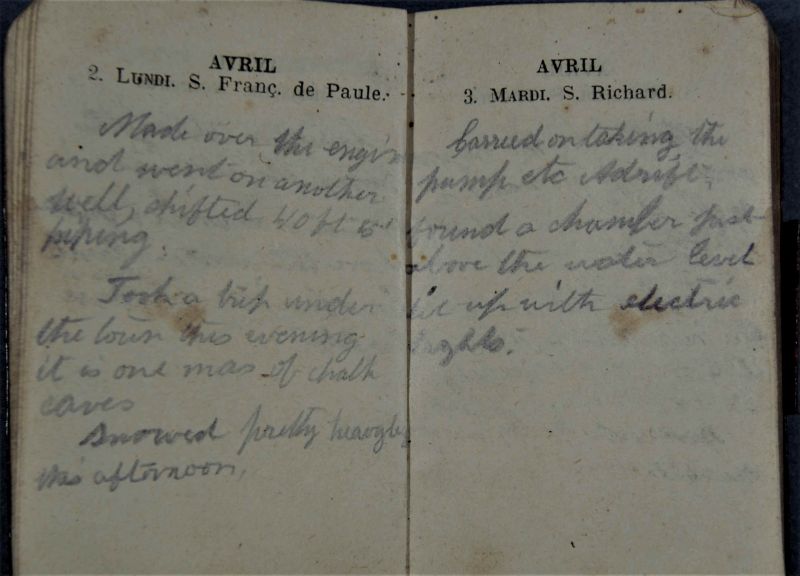 AVRIL
2. LUNDI. S. Franç. de Paule.
Made over the engin
and went on another
well, shifted 40 ft
piping.
Took a trip under
the town this evening
it is one mas of chalk
caves
Snowed pretty heavily
this afternoon,
AVRIL
3. MARDI. S. Richard.
Carried on taking the
pump etc Adrift,
found a chamber just
above the water level
lit up with electric
lights.